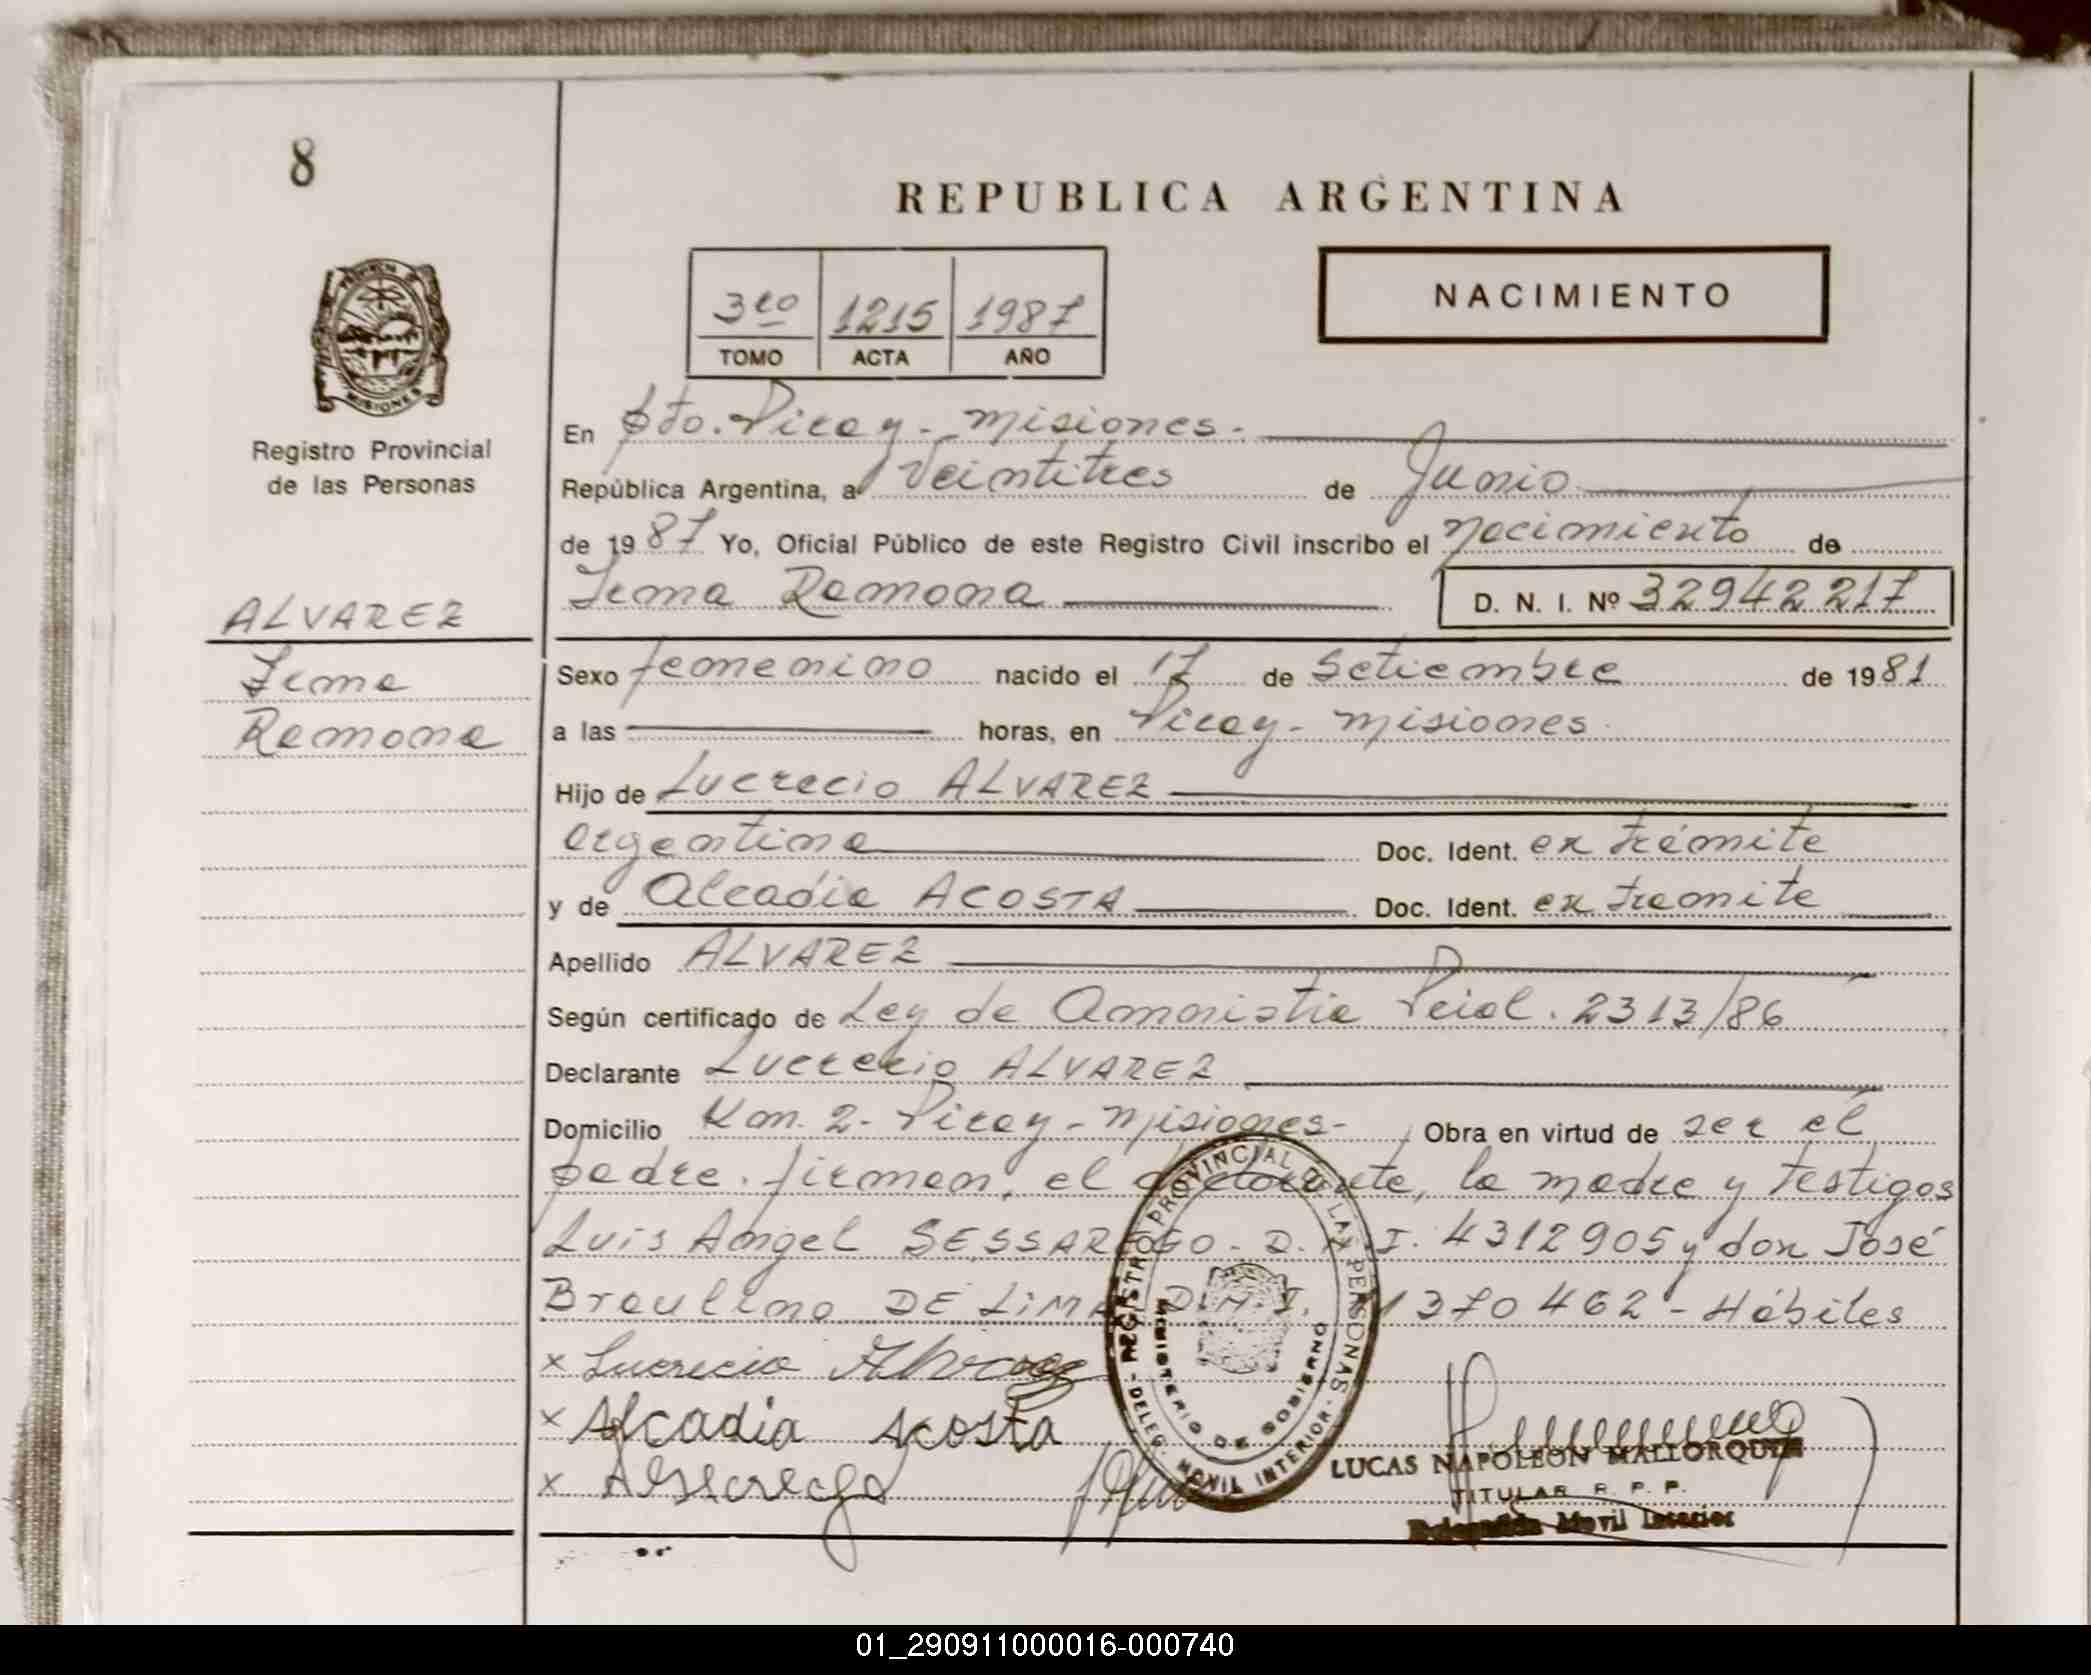 8
REPUBLICA ARGENTINA
3ro 1215 1987
TOMO ACTA AÑO
NACIMIENTO
MISIONES
Registro Provincial
de las Personas
En Pto. Piray - Misiones -
República Argentina, a Veintitres de Junio
de 1987 Yo, Oficial Público de este Registro Civil inscribo el nacimiento de
Irma Ramona D. N. I. Nº 32942217
ALVAREZ
Irma
Ramona
Sexo femenino nacido el 17 de Setiembre de 1981
a las horas, en Piray - Misiones
Hijo de Lucrecio ALVAREZ
argentina Doc. Ident. en trámite
y de Alcadia ACOSTA Doc. Ident. en tramite
Apellido ALVAREZ
Según certificado de Ley de Amnistia Pcial. 2313/86
Declarante Lucrecio ALVAREZ
Domicilio Km. 2 - Piray - Misiones - Obra en virtud de ser el
padre. firman, el declarante, la madre y testigos
Luis Angel SESSAREGO - D.N.I. 4312905 y don José
Braulino DE LIMA D.N.I. 370462 - Hábiles
x Lucrecio Alvarez
x Alcadia Acosta
x
REGISTRO PROVINCIAL DE LAS PERSONAS
- DELEG. MOVIL INTERIOR -
MINISTERIO DE GOBIERNO
LUCAS NAPOLEON MALLORQUIN
TITULAR R. P. P.
Delegación Movil Interior
01_290911000016-000740